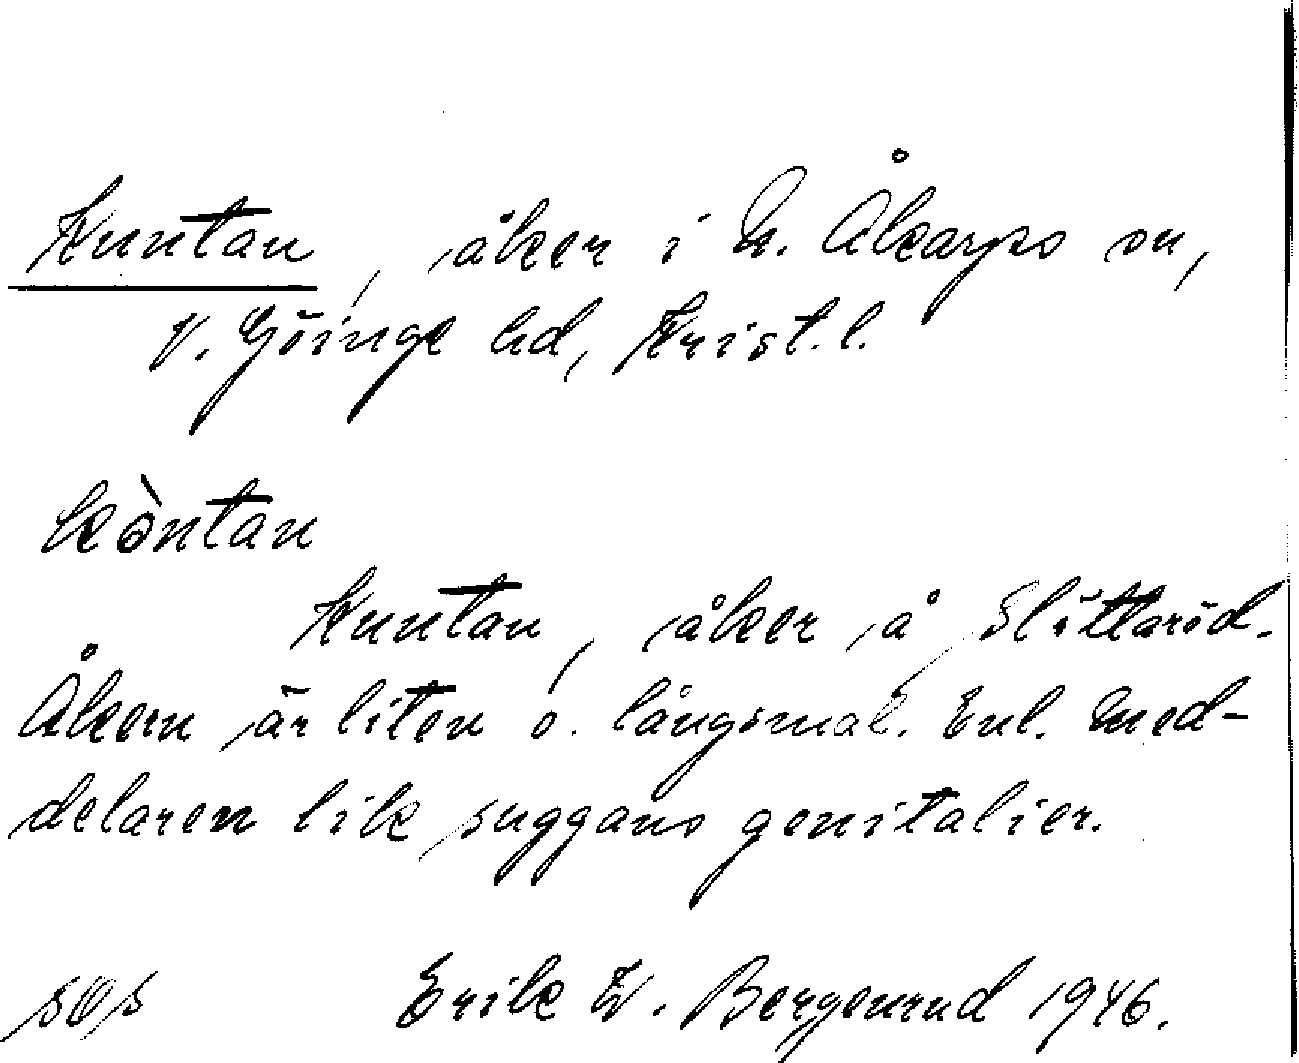 Kuntan, åker i N. Åkarps sn,
V. Göinge hd, Krist. l.
kòntan
Kuntan, åker å Slättaröd.
Åkern är liten o. långsmal. Enl. med-
delaren lik suggans genitalier.
Erik W. Bergenrud 1946.